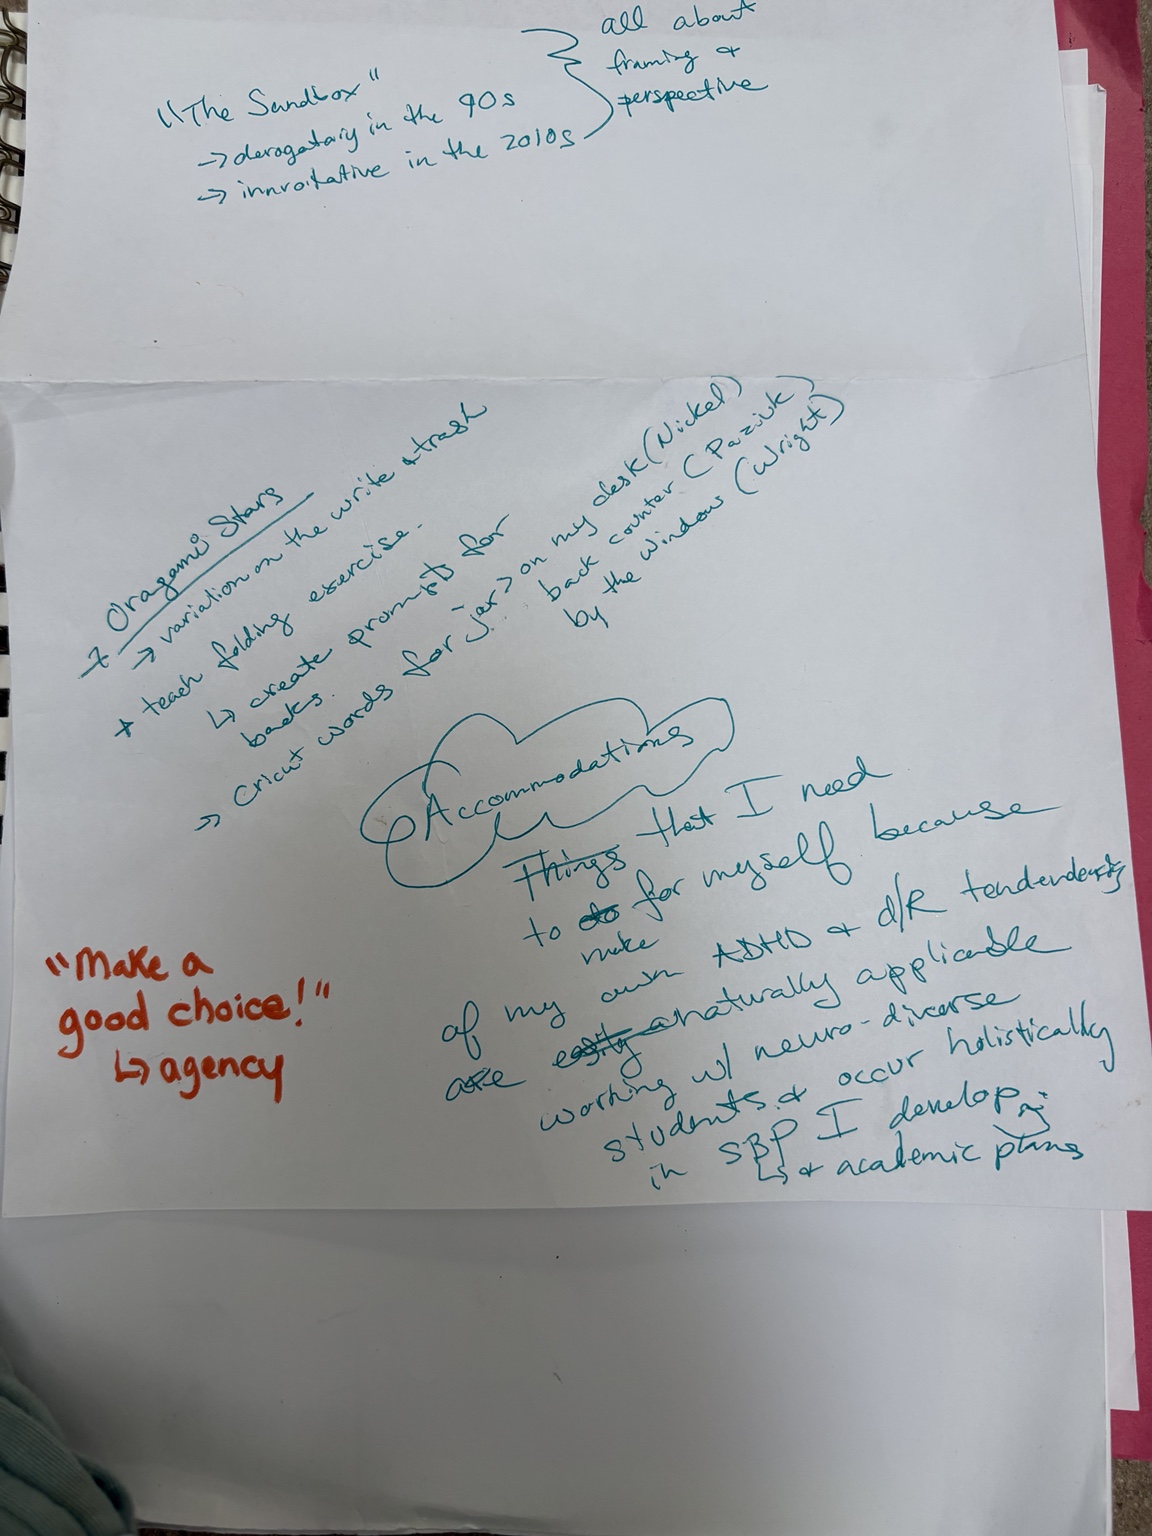 "The Sandbox"
→ derogatory in the 90s
→ innvoitative in the 2010s
all about
framing &
perspective
Oragami Stars
→ variation on the write & trash
folding exercise.
+ teach
↳ create prompts for
backs.
→ cricut words for jar → on my desk (Nickel)
back counter (Paziuk)
by the window (Wright)
Accommodations
Things that I need
to do for myself because
make
of my own ADHD & d/R
are easily naturally applicable
working w/ neuro-diverse
students & occur holistically
in SBP I develop
↳ & academic plans
"Make a
good choice!"
↳ agency